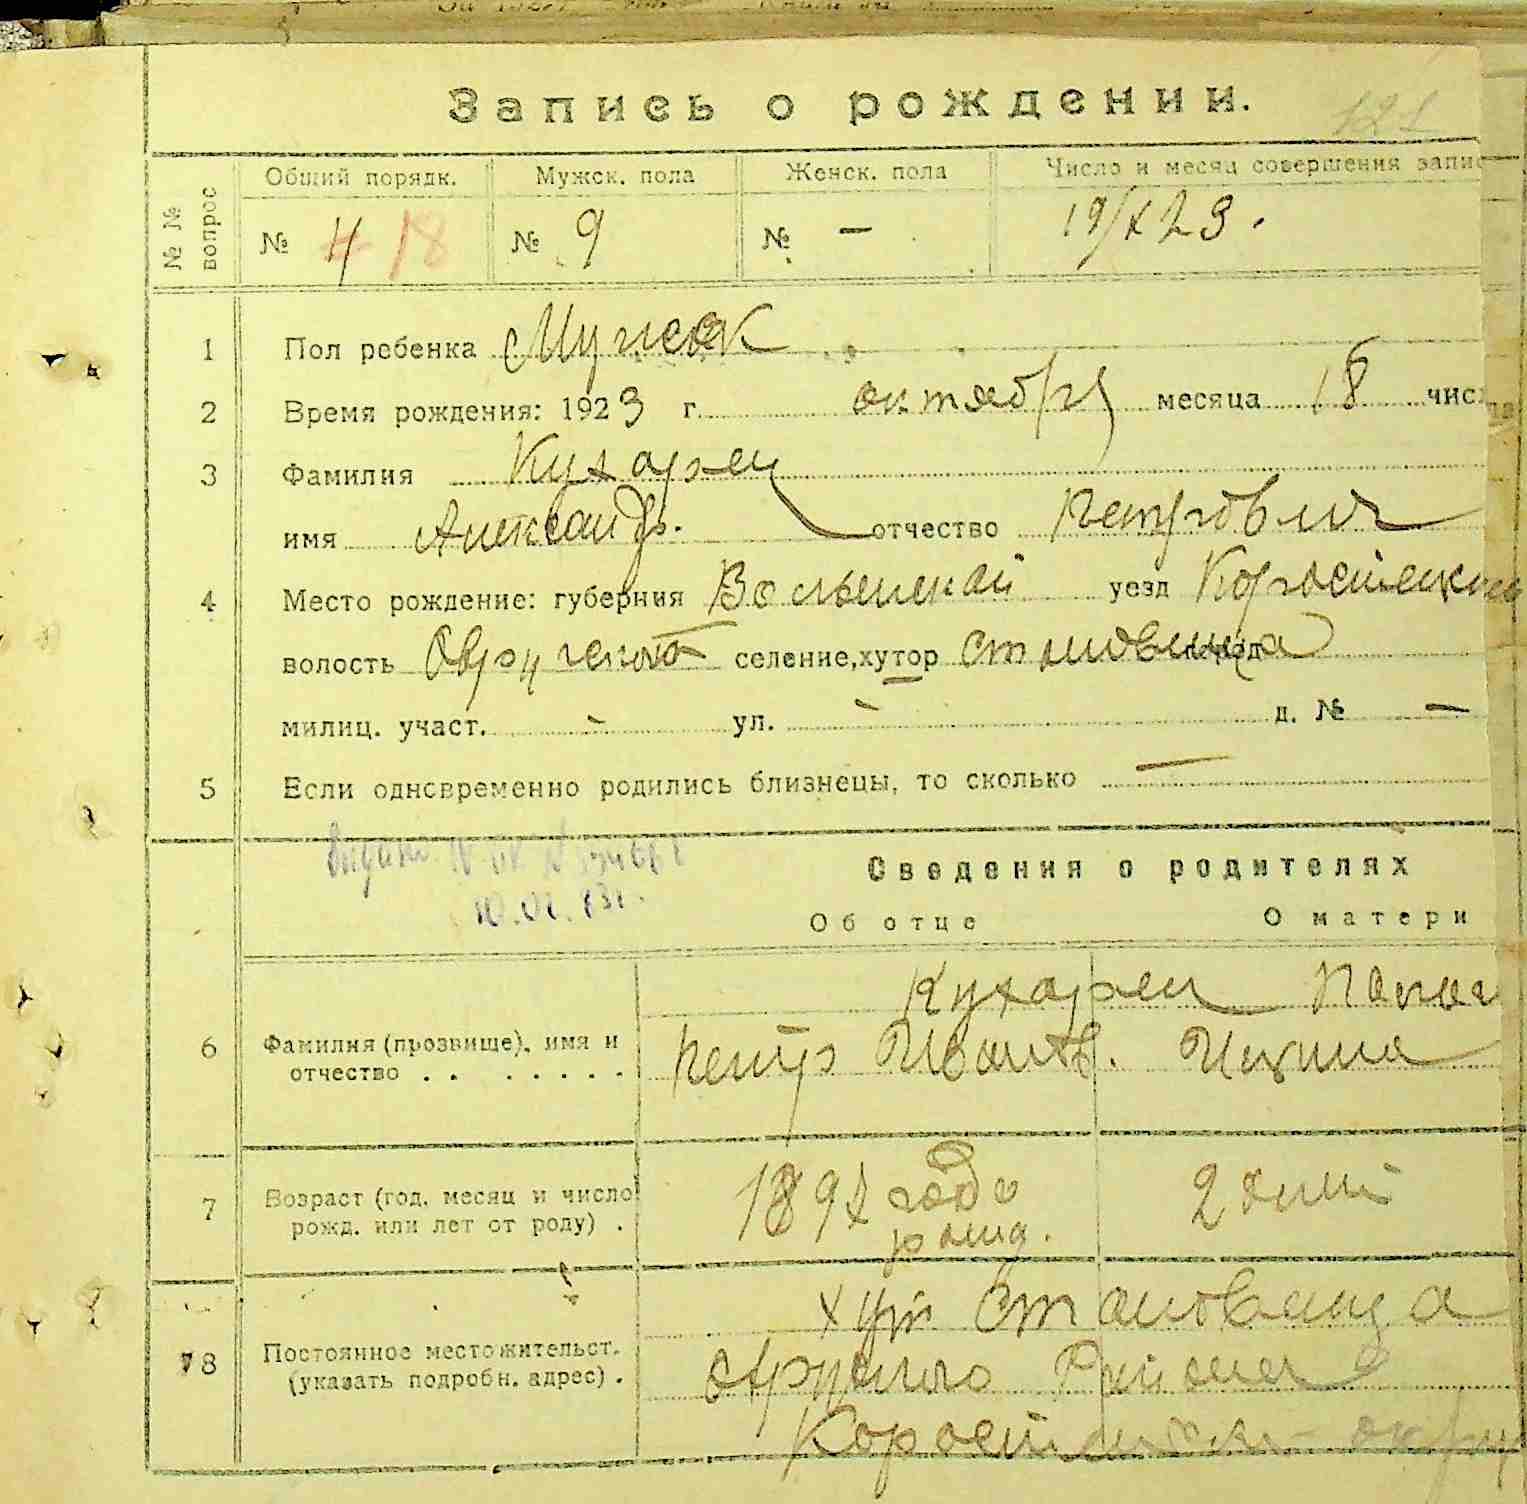 Запись о рождении.
121
№ № вопрос
Общий порядк. Мужск. пола Женск. пола Число и месяц совершения запис
№ 4 18 № 9 № — 19/X 23.
1 Пол ребенка Мужск
2 Время рождения: 1923 г. октября месяца 18 числ
3 Фамилия Кухарец
имя Александр. отчество Петрович
4 Место рождение: губерния Волынской уезд Коростенского
волость Овручской селение, хутор Становища
милиц. участ. - ул. - д. № —
5 Если одновременно родились близнецы, то сколько —
Сведения о родителях
Об отце О матери
Кухарец
6 Фамилия (прозвище), имя и
отчество . . . . . . . Петр Иванов.
7 Возраст (год, месяц и число
рожд. или лет от роду) . 1897 года
рожд.
хут Становища
78 Постоянное местожительст.
(указать подробн. адрес) . Района